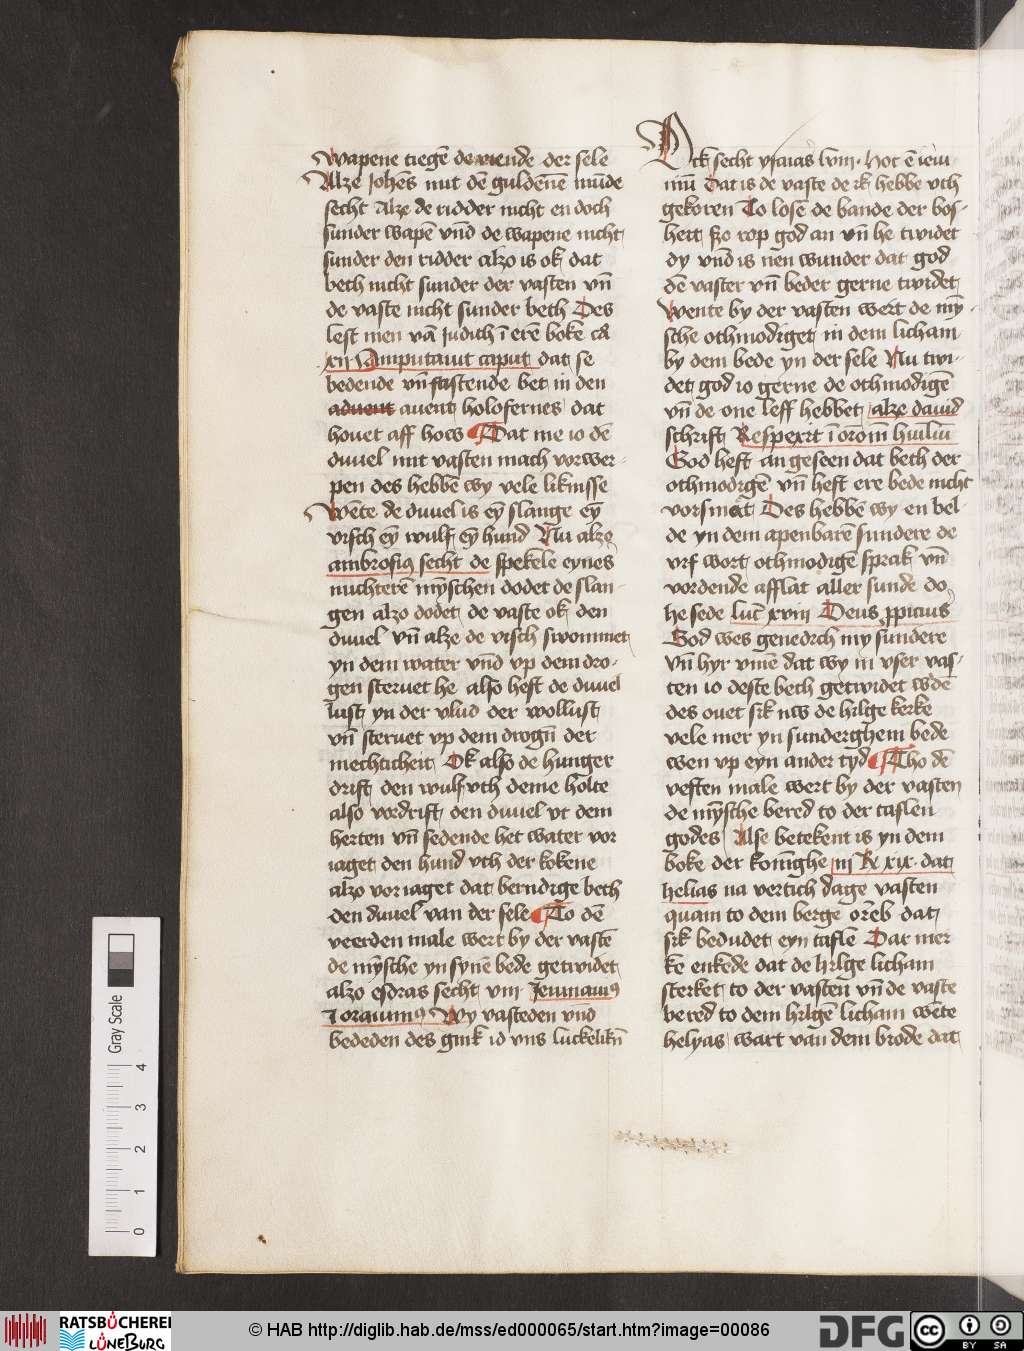 wapene tiegē de viende der sele
Alze Johēs mit dē guldenē mūde
secht Alze de ridder nicht en doch
sunder wapē vn̄d de wapene nicht
sunder den ridder alzo is ok dat
beth nicht sunder der vasten vn̄
de vaste nicht sunder beth Des
lest men vā Judith ī erē boke cā
xiij Amputauit caput dat se
bedende vn̄ fastende bet in den
aduent auent holofernes dat
houet aff how Dat me io dē
duuel mit vasten mach vorwer-
pen des hebbē wy vele liknisse
Wēte de duuel is eȳ slange eȳ
visch eȳ wulf eȳ hund Nu alze
ambrosius secht de spekele eynes
nuchterē mȳschen dodet de slan-
gen alzo dodet de vaste ok den
duuel vn̄ alze de visch swommet
yn dem water vn̄d vp dem dro-
gen steruet he also heft de duuel
lust yn der vlud der wollust
vn̄ steruet vp dem drogn̄ der
mechticheit Ok also de hunger
drift den wulf vth deme holte
also vordrift den duuel vt dem
herten vn̄ sedende het water vor
iaget den hund vth der kokene
alzo voriaget dat berndige beth
den duuel van der sele To dē
veerden male wert by der vastē
de mȳsche yn synē bede getwidet
alzo esdras secht viii Jeiunauiꝯ
Et orauimꝯ Wy vasteden vn̄d
bededen des gink id vns luckelikn̄
Ok secht ysaias lviii. Hoc ē ieiu
niū Dat is de vaste de ik hebbe vth
gekoren To losē de bande der bos-
heit szo rop god an vn̄ he twidet
dy vn̄d is nen wunder dat god
dē vaster vn̄ beder gerne twidet
Wente by der vasten wert de mȳ-
sche othmodiget in dem licham
by dem bede yn der sele Nu twi-
det god io gerne de othmodigē
vn̄ de one leff hebbet alze dauid
schrift Respexit ī oroīm hūiliū
God heft angeseen dat beth der
othmodigē vn̄ heft ere bede nicht
vorsmat Des hebbē wy en bel-
de yn dem apenbarē sundere de
vif wort othmodigē sprak vn̄
vordende afflat aller sunde do
he sede luc̄ xviii Deus ꝓpicius
God wes genedich my sundere
Vn̄ hyr vmē dat wy in vser vas-
ten io deste beth getwidet wdē
des ouet sik nw de hilge kerke
vele mer yn sunderghem bede
wen vp eyn ander tyd Tho dē
veften male wert by der vasten
de mȳsche bered to der taflen
godes Alse betekent is yn dem
boke der konīghe iij R̄ xix. dat
helias na vertich dage vasten
quam to dem berge orēb dat
sik bedudet eyn taflē Dar mer
ke enkede dat de hilge licham
sterket to der vasten vn̄ de vaste
bered to dem hilgē licham wēte
helyas wart van dem brode dat
Gray Scale
0 1 2 3 4
RATSBÜCHEREI
LÜNEBURG
© HAB http://diglib.hab.de/mss/ed000065/start.htm?image=00086
DFG
cc
BY SA